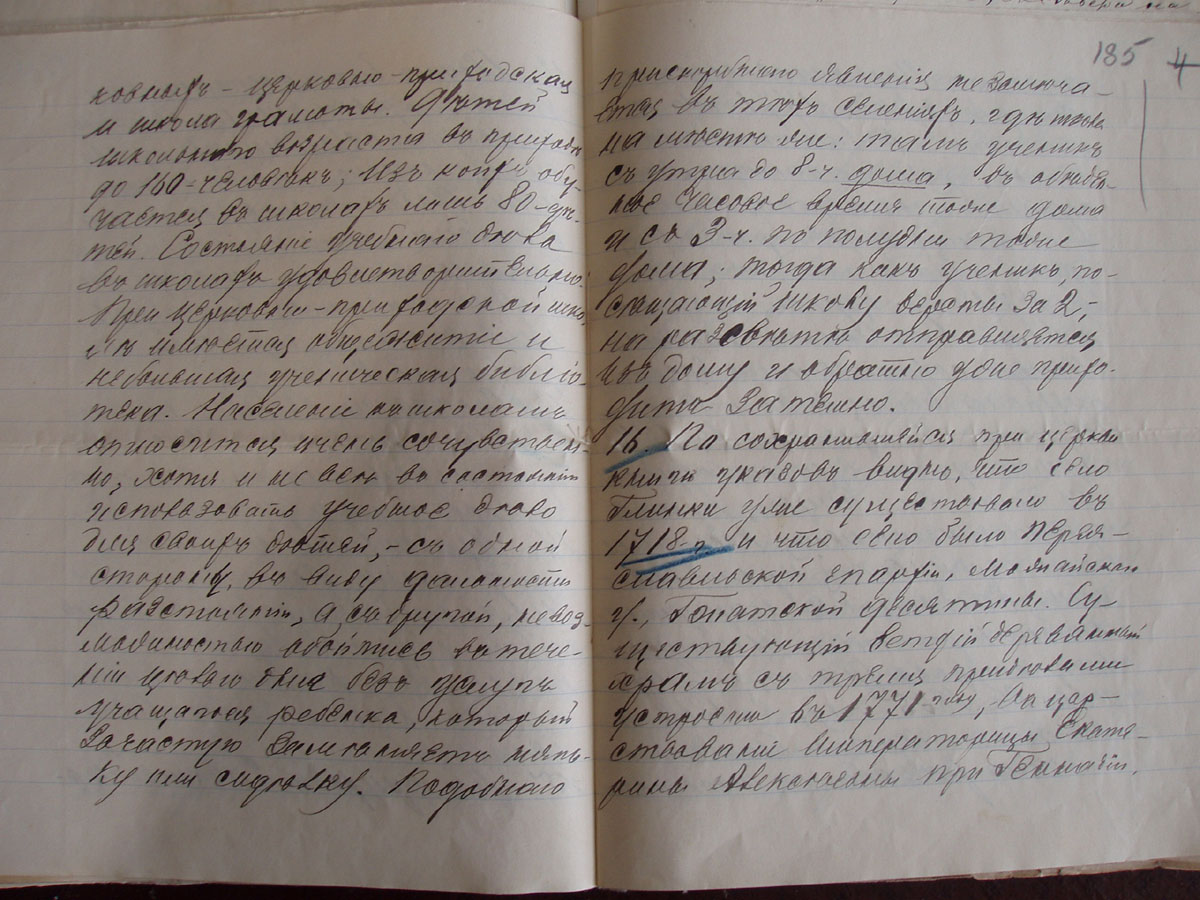 ковныхъ - церковно-приходская
и школа грамоты. Дѣтей
школьнаго возраста въ приходѣ
до 160-человѣкъ; изъ коихъ обу-
чается въ школахъ лишь 80-дѣ-
тей. Состояніе учебнаго дѣла
въ школахъ удовлетворительно.
При церковно-приходской шко-
лѣ имѣется общежитіе и
небольшая ученическая библіо-
тека. Населеніе къ школамъ
относится очень сочувствен-
но, хотя и не все въ состояніи
использовать учебное дѣло
для своихъ дѣтей, - съ одной
стороны, въ виду дальности
разстоянія, а съ другой, невоз-
можностью обойтись въ тече-
ніи цѣлаго дня безъ услугъ
учащагося ребенка, который
зачастую замѣняетъ нянь-
ку или сидѣлку. Подобнаго
185 4
прискорбнаго явленія не замѣча-
ется въ тѣхъ селеніяхъ, гдѣ школа
на мѣстѣ же: тамъ ученикъ
съ утра до 8-ч. дома, въ обѣден-
ное часовое время тоже дома
и съ 3-ч. по полудни тоже
дома; тогда какъ ученикъ, по-
сѣщающій школу версты за 2,-
на разсвѣтѣ отправляется
изъ дому и обратно уже прихо-
дитъ затемно.
16. По сохранившейся при церкви
книги указовъ видно, что село
Глинки уже существовало въ
1718-г. и что село было Переяс-
славльской епархіи, Можайскаго
у., десятины. Су-
ществующій ветхій деревянный
храмъ съ тремя придѣлами
устроенъ въ 1771 году, въ цар-
ствованіе Императрицы Екате-
рины Алексѣевны при Геннадіи,